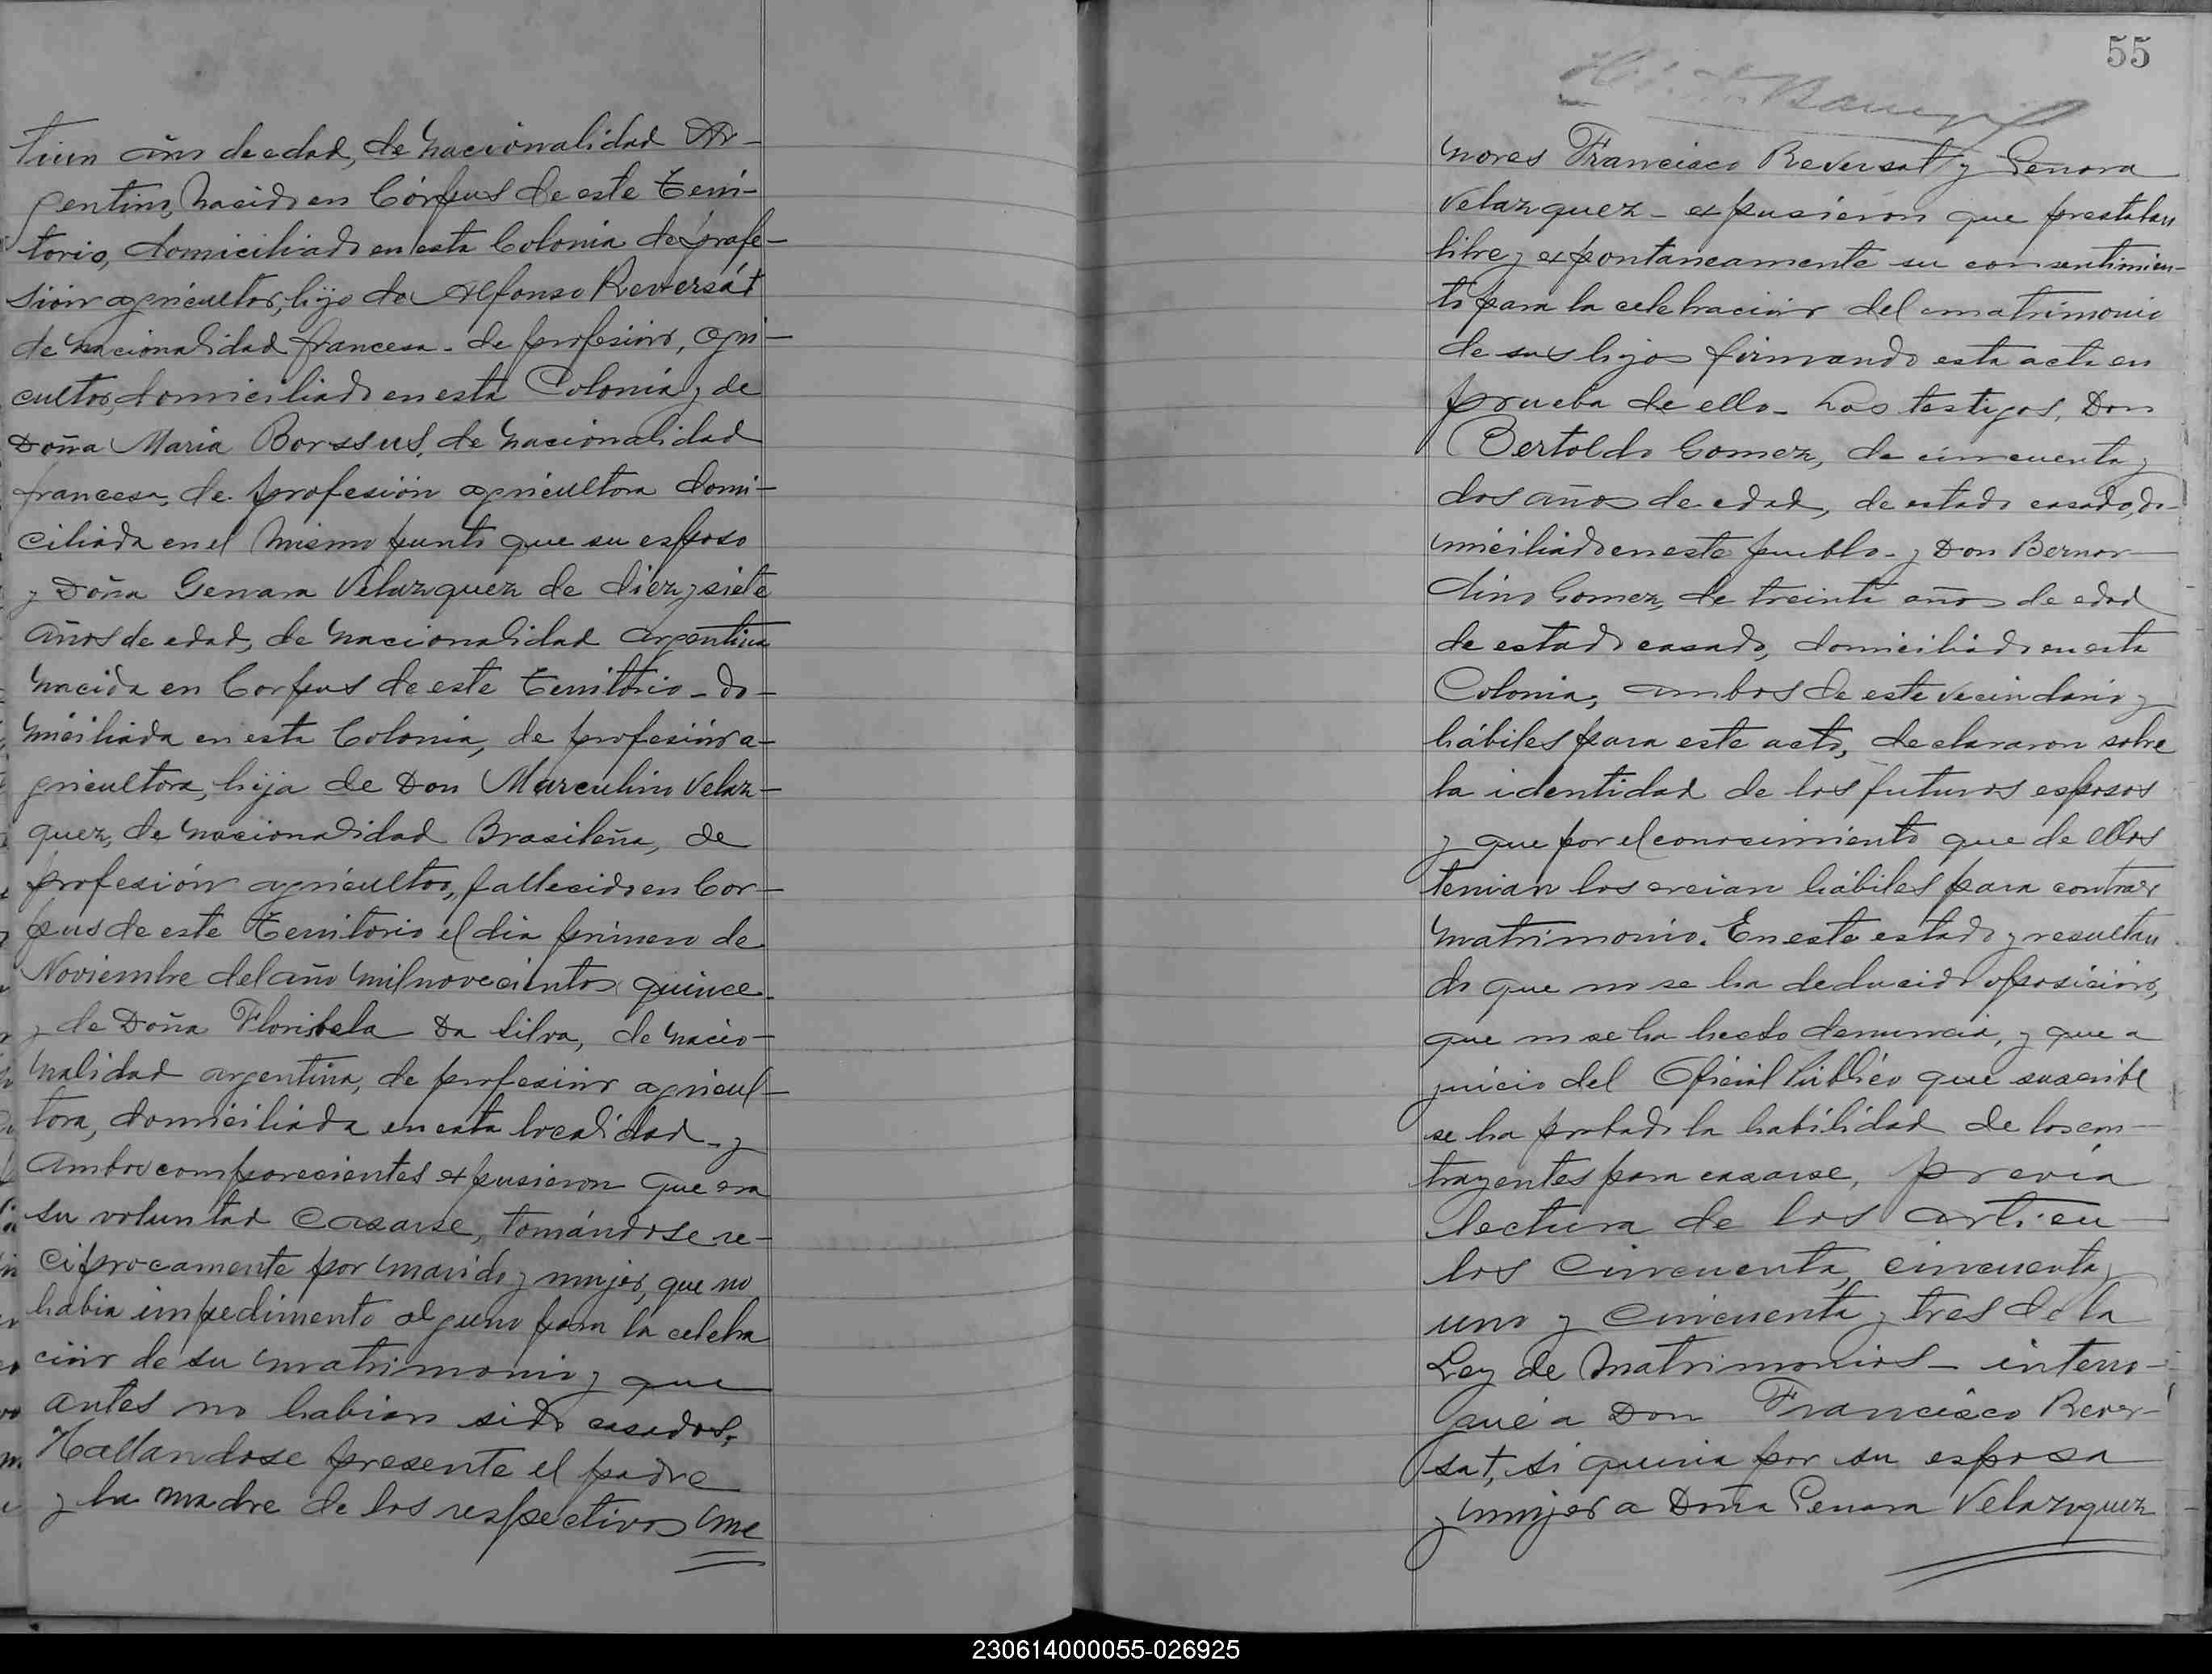 tiun años de edad, de nacionalidad Ar-
gentino, nacido en Córpus de este Terri-
torio, domiciliado en esta Colonia de profe-
sión agricultor, hijo de Alfonso Reversát
de nacionalidad francesa - de profesión, agri-
cultor, domiciliado en esta Colonia y de
Doña Maria Borssus, de nacionalidad
francesa, de profesión agricultora domi-
ciliada en el mismo punto que su esposo
y Doña Genara Velazquez de diez y siete
años de edad, de nacionalidad argentina
nacida en Corpus de este Territorio - do-
miciliada en esta Colonia, de profesión a-
gricultora, hija de Don Marculino Velaz-
quez, de nacionalidad Brasileña, de
profesión agricultor, fallecido en Cor-
pus de este Territorio el dia primero de
Noviembre del año mil novecientos quince
y de Doña Florisbela Da Silva, de nacio-
nalidad argentina, de profesión agricul-
tora, domiciliada en esta localidad - y
ambos comparecientes expusieron que era
su voluntad casarse, tomándose re-
ciprocamente por marido y mujer, que no
habia impedimento alguno para la celebra
ción de su matrimonio y que
antes no habian sido casados;
Hallandose presente el padre
y la madre de los respectivos me
55
nores Francisco Reversat y Genara
Velazquez - expusieron que prestaban
libre y expontaneamente su consentimien-
to para la celebración del matrimonio
de sus hijos firmando esta acta en
prueba de ello - Los testigos, Don
Bertoldo Gomez, de cincuenta y
dos años de edad, de estado casado, do-
miciliado en este pueblo - y Don Bernar
dino Gomez, de treinta años de edad
de estado casado, domiciliado en esta
Colonia; ambos de este vecindario y
hábiles para este acto, declararon sobre
la identidad de los futuros esposos
y que por el conocimiento que de ellos
tenian los creian hábiles para contraer
matrimonio. En este estado y resultan
do que no se ha deducido oposición,
que no se ha hecho denuncia, y que a
juicio del Oficial Público que suscribe
se ha probado la habilidad de los con-
trayentes para casarse, previa
lectura de los articu
los cincuenta, cincuenta y
uno y cincuenta y tres de la
Ley de Matrimonios - interro-
gué a Don Francisco Rever-
sat, si queria por su esposa
y mujer a Doña Genara Velazquez
230614000055-026925